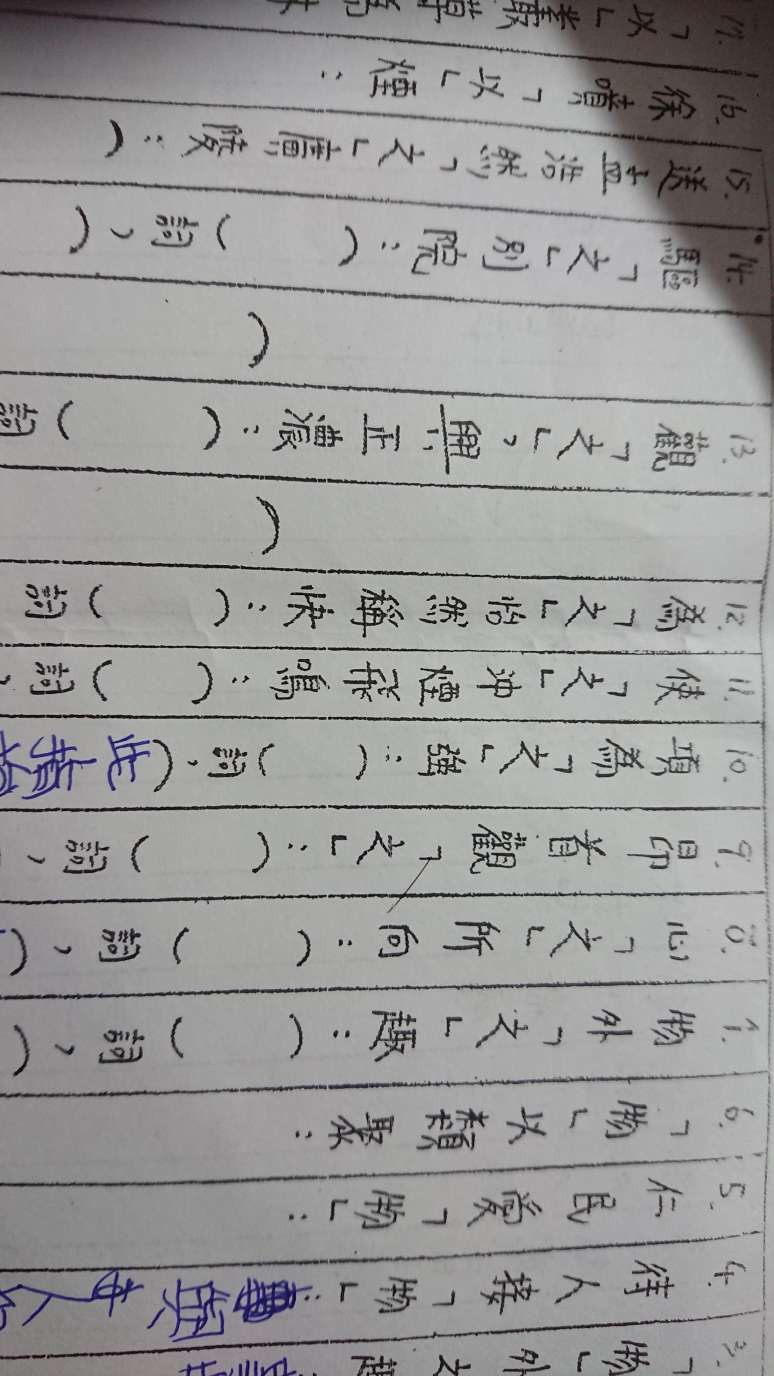 「物」外之趣
4. 待人接「物」：
5. 仁民愛「物」：
6. 「物」以類聚：
7. 物外「之」趣：(　　)詞、(
8. 心「之」所向：(　　)詞、(
9. 昂首觀「之」：(　　)詞、
10. 項為「之」強：(　　)詞、(此指
11. 使「之」沖煙飛鳴：(　　)詞、
12. 為「之」怡然稱快：(　　)詞
(
13. 觀「之」，興正濃：(　　)詞
(
14. 驅「之」別院：(　　)詞、(
15. 送孟浩然「之」廣陵：(
16. 徐噴「以」煙：
17. 「以」叢草為林